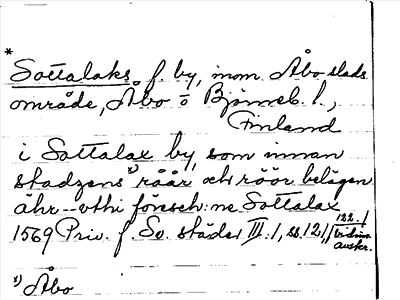 *
Sottalaks f. by, inom Åbo stads
område, Åbo o Björneb. l.,
Finland
i Sottalax by, som innan
stadzens ¹) råår och röör belägen
ähr -- vthi föresch:ne Sottalax
1569 Priv. f. Sv. städer III: 1, ss. 121, 122. /
vidim.
avskr.
¹) Åbo